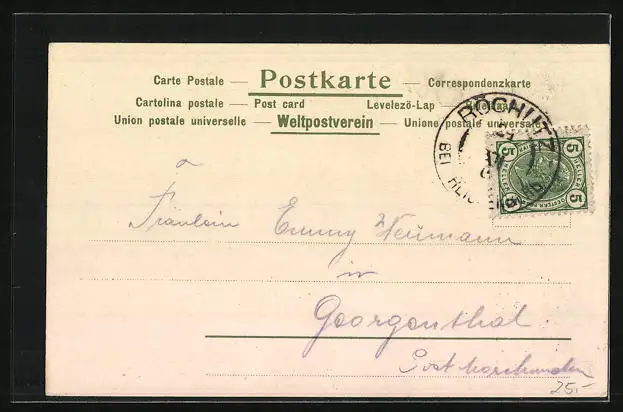 Carte Postale — Postkarte — Correspondenzkarte
Cartolina postale — Post card Levelező-Lap —
Union postale universelle — Weltpostverein — Unione postale universale
ROCHLITZ
BEI
5 HELLER 5
5 5
Fräulein Emmy Neumann
in
Georgenthal
Post
25.-